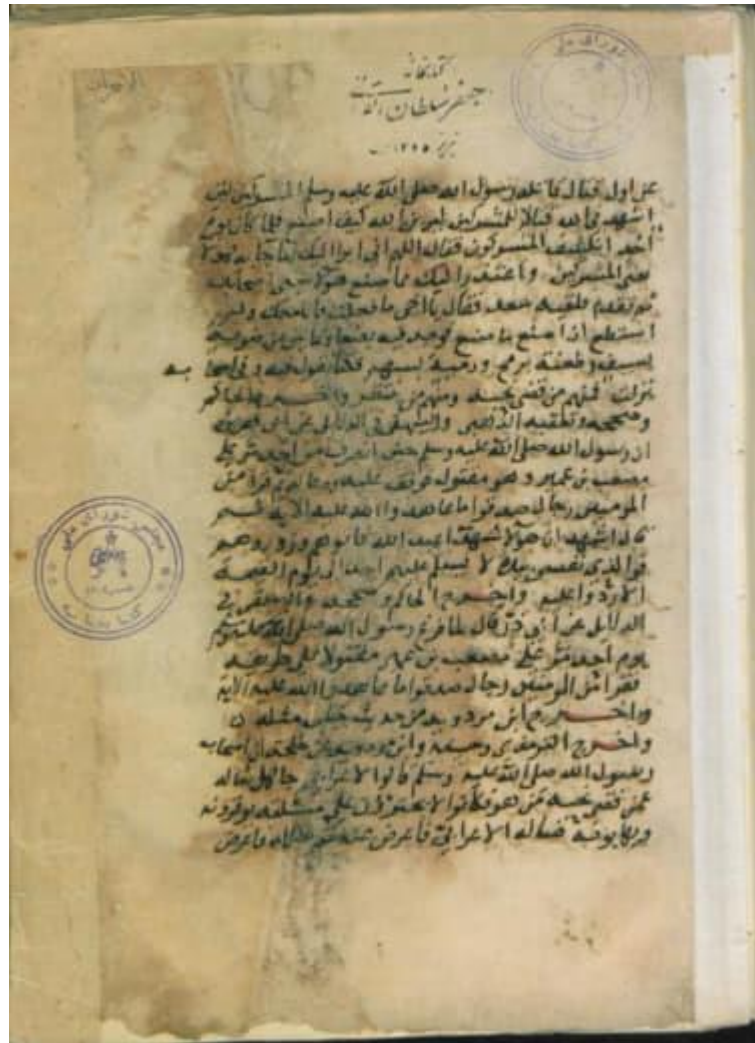 كتابخانه
جعفر سلطان القرائی
تبریز ۱۳۴۵
مجلس شورای ملی
عن اول قتال قاتله رسول الله صلى الله عليه وسلم المشركين لئن
اشهدني الله قتالا للمشركين ليرين الله كيف اصنع فلما كان يوم
أحد انكشف المشركون فقال اللهم اني ابرا اليك مما جا به هولا
يعني المشركين واعتذر اليك مما صنع هولا يعني اصحابه
ثم تقدم فلقيه سعد فقال يا اخي ما فعلت فانا معك ولم
استطع ان اصنع ما صنع فوجد فيه بضعا وثمانين من ضربة
بسيف وطعنة برمح ورمية بسهم فكنا نقول فيه وفي اصحابه
نزلت فمنهم من قضى نحبه ومنهم من ينتظر واخرج الحاكم
وصححه وتعقبه الذهبي والبيهقي في الدلايل عن ابي هريرة
ان رسول الله صلى الله عليه وسلم حين انصرف من احد مر على
مصعب بن عمير وهو مقتول فوقف عليه ودعا له ثم قرا من
المومنين رجال صدقوا ما عاهدوا الله عليه الاية ثم
قال اشهد ان هولا شهدا عند الله فاتوهم وزوروهم
فوالذي نفسي بيده لا يسلم عليهم احد الى يوم القيمة
الا ردوا عليه واخرج الحاكم وصححه والبيهقي في
الدلايل عن ابي ذر قال لما فرغ رسول الله صلى الله عليه وسلم
يوم احد مر على مصعب بن عمير مقتولا على طريقه
فقرا من المومنين رجال صدقوا ما عاهدوا الله عليه الاية
واخرج ابن مردويه من حديث خباب مثله
واخرج الترمذي وحسنه وابن مردويه عن طلحة ان اصحاب
رسول الله صلى الله عليه وسلم قالوا لاعرابي جاهل سله
عمن قضى نحبه من هو وكانوا لا يجترؤن على مسئلته يوقرونه
ويهابونه فساله الاعرابي فاعرض عنه ثم ساله فاعرض
مجلس شورای ملی
کتابخانه